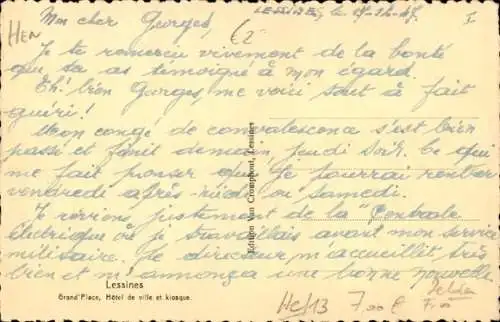 Mon cher Georges,
LESSINES, le
I.
HEN
62
Je te remercie vivement de la bonté
que tu as témoigné à mon égard.
Eh! bien Georges, me voici tout à fait
guéri!
Mon congé de convalescence s'est bien
passé et finit demain, jeudi soir. Ce qui
me fait penser que je pourrai rentrer
vendredi après-midi ou samedi.
Je reviens justement de la "Centrale
électrique où je travaillais avant mon service
militaire. Le directeur m'accueillit très
bien et m'annonça une bonne nouvelle
Edition Van Cromphout, Lessines
Lessines
Grand'Place, Hôtel de ville et kiosque.
Hef13
7,00 €